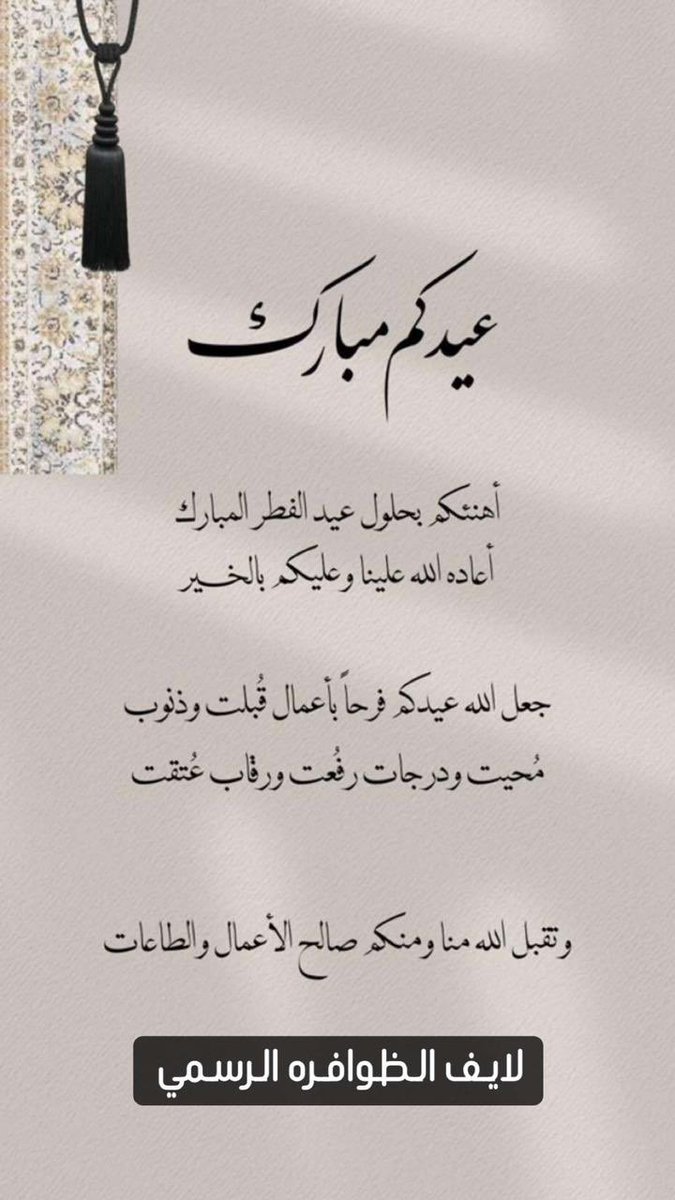 عيدكم مبارك
أهنئكم بحلول عيد الفطر المبارك
أعاده الله علينا وعليكم بالخير
جعل الله عيدكم فرحاً بأعمال قُبلت وذنوب
مُحيت ودرجات رفُعت ورقاب عُتقت
وتقبل الله منا ومنكم صالح الأعمال والطاعات
لايف الظوافره الرسمي